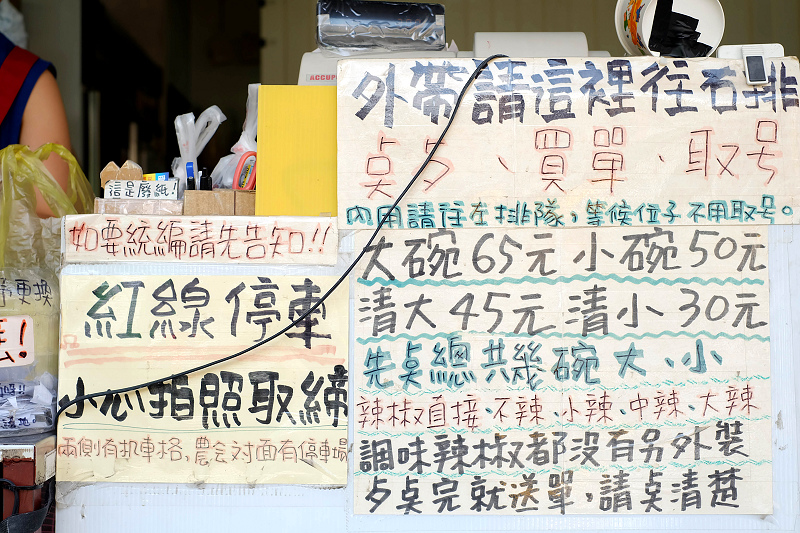 外帶請這裡往右排
点歹、買單、取号
內用請往左排隊，等候位子不用取号。
大碗65元 小碗50元
清大45元 清小30元
先点總共幾碗大、小
辣椒直接、不辣、小辣、中辣、大辣
調味辣椒都沒有另外裝
歹点完就送單，請点清楚
這是廢紙!
如要統編請先告知!!
紅線停車
小心拍照取締
兩側有机車格，農会对面有停車場
更換